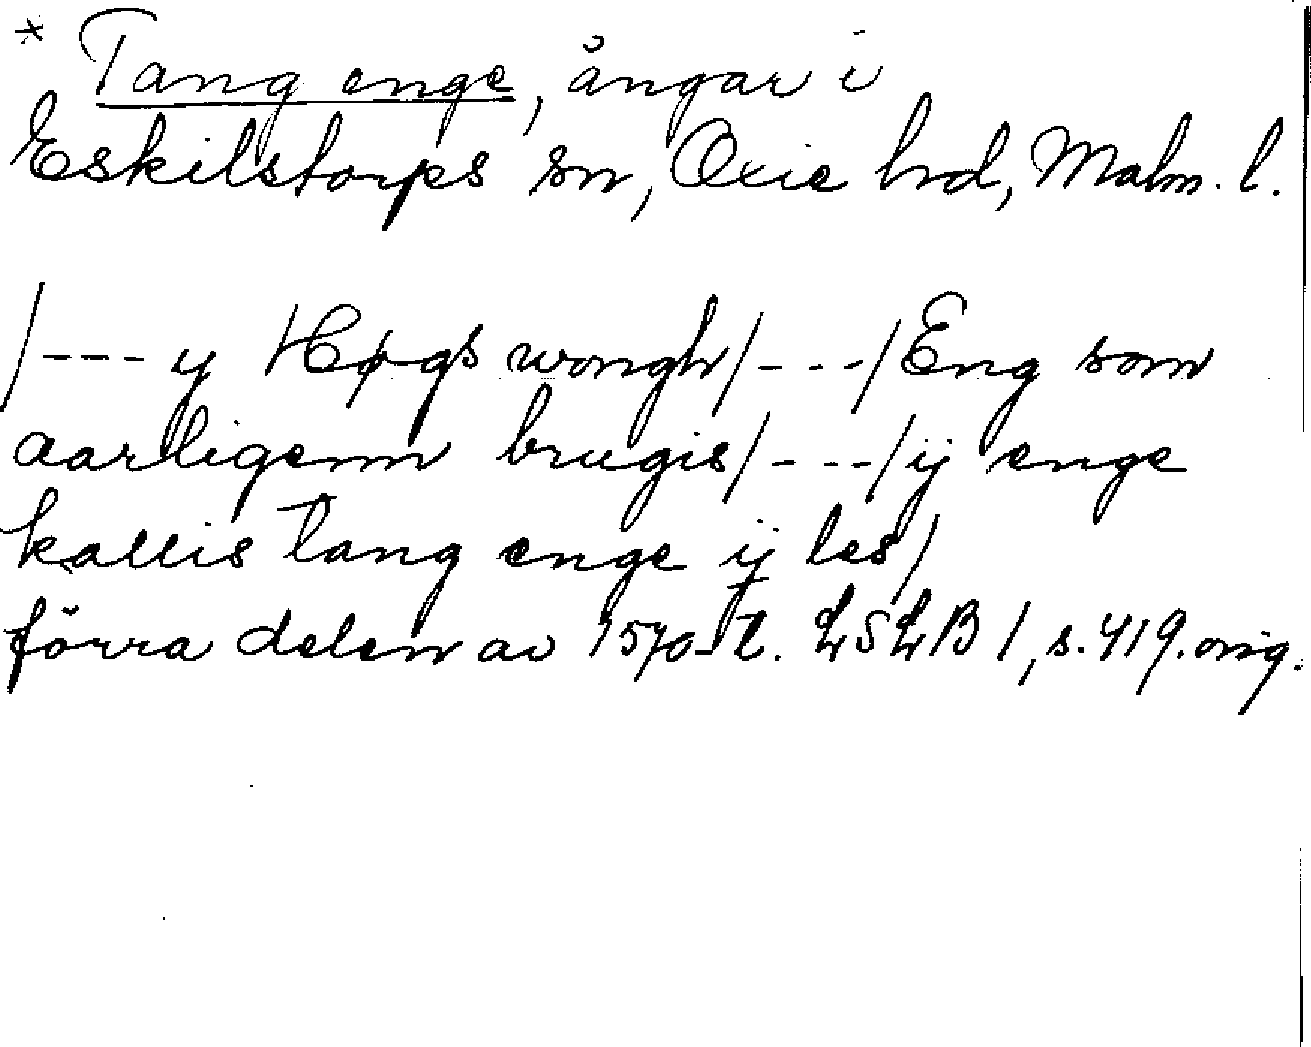 * Tang enge, ängar i
Eskilstorps sn, Oxie hd, Malm. l.
/--- y Høgs wongh/---/Eng som
aarligenn brugis/---/ij enge
kallis tang enge ij les/
förra delen av 1570-t. LSLB 1, s. 419. orig.